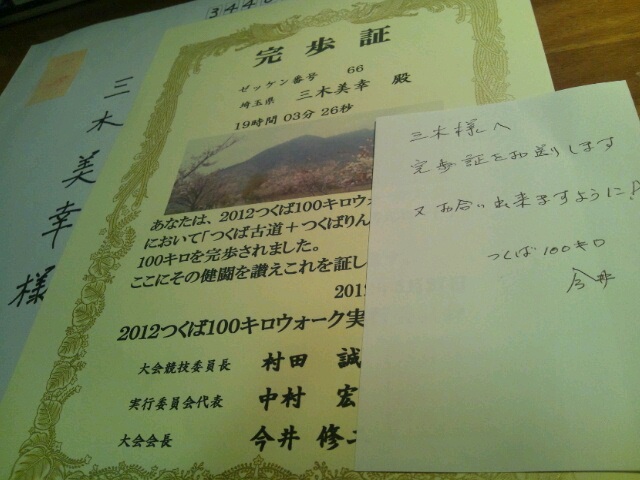 344
三木美幸様
完歩証
ゼッケン番号 66
埼玉県 三木美幸 殿
19時間 03分 26秒
あなたは、2012つくば100キロウォ
において「つくば古道+つくばりん
100キロを完歩されました。
ここにその健闘を讃えこれを証し
201
2012つくば100キロウォーク実
大会競技委員長 村田 誠
実行委員会代表 中村 宏
大会会長 今井 修
三木様へ
完歩証をお送りします
又お会い出来ますように!
つくば100キロ
今井